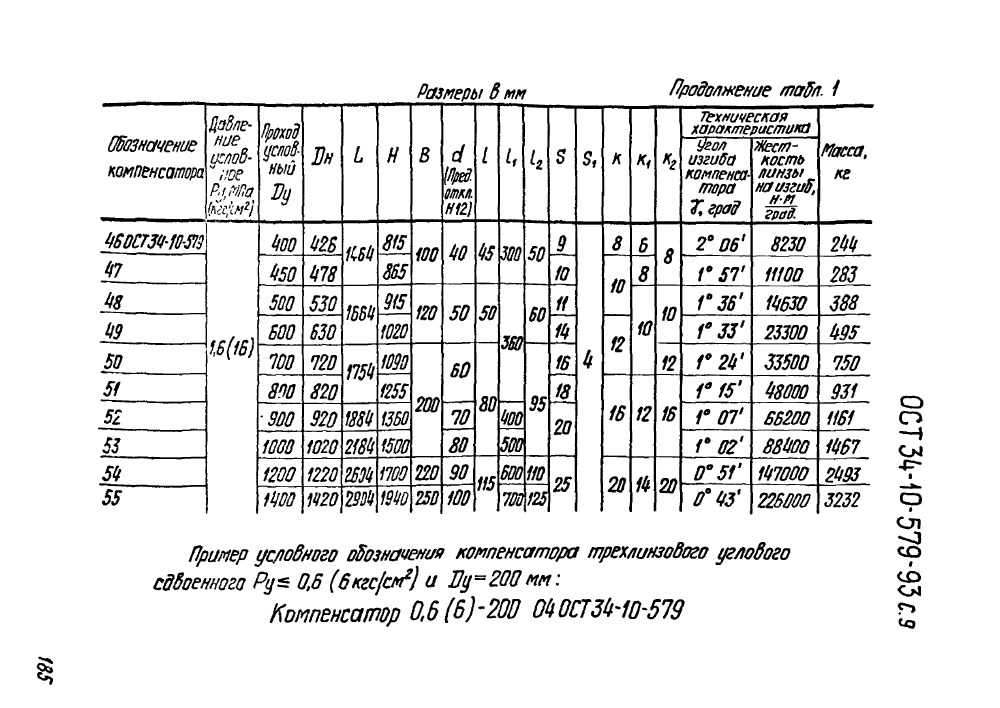 Размеры в мм
Продолжение табл. 1
Обозначение компенсатора | Давление условное Ру, МПа (кгс/см²) | Проход условный Ду | Дн | L | H | B | d (Пред. откл. H12) | l | l₁ | l₂ | S | S₁ | к | к₁ | к₂ | Техническая характеристика | Масса, кг
Угол изгиба компенсатора γ, град | Жесткость линзы на изгиб, Н·м/град.
46 ОСТ 34-10-579 | 1,6(16) | 400 | 426 | 1464 | 815 | 100 | 40 | 45 | 300 | 50 | 9 | 4 | 8 | 6 | 8 | 2° 06' | 8230 | 244
47 | 450 | 478 | 865 | 10 | 10 | 8 | 1° 57' | 11100 | 283
48 | 500 | 530 | 1664 | 915 | 120 | 50 | 50 | 360 | 60 | 11 | 10 | 10 | 1° 36' | 14630 | 388
49 | 600 | 630 | 1020 | 14 | 12 | 1° 33' | 23300 | 495
50 | 700 | 720 | 1754 | 1090 | 200 | 60 | 80 | 95 | 16 | 12 | 1° 24' | 33500 | 750
51 | 800 | 820 | 1255 | 18 | 16 | 12 | 16 | 1° 15' | 48000 | 931
52 | 900 | 920 | 1884 | 1360 | 70 | 400 | 20 | 1° 07' | 66200 | 1161
53 | 1000 | 1020 | 2184 | 1500 | 80 | 500 | 1° 02' | 88400 | 1467
54 | 1200 | 1220 | 2604 | 1700 | 220 | 90 | 115 | 600 | 110 | 25 | 20 | 14 | 20 | 0° 51' | 147000 | 2493
55 | 1400 | 1420 | 2904 | 1940 | 250 | 100 | 700 | 125 | 0° 43' | 226000 | 3232
Пример условного обозначения компенсатора трехлинзового углового
сдвоенного Ру ≤ 0,6 (6 кгс/см²) и Ду=200 мм:
Компенсатор 0,6 (6)-200 04 ОСТ 34-10-579
ОСТ 34-10-579-93 с.9
185